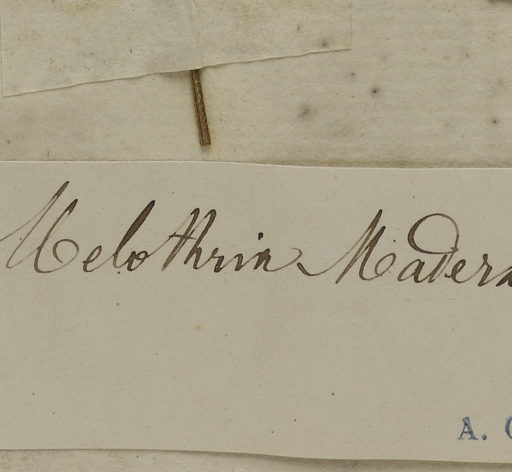 Melothria Madera
A.